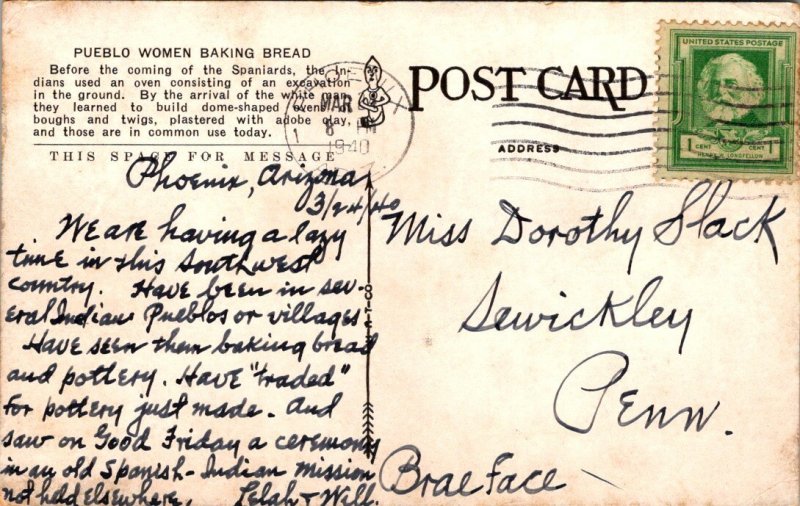 PUEBLO WOMEN BAKING BREAD
Before the coming of the Spaniards, the In-
dians used an oven consisting of an excavation
in the ground. By the arrival of the white man
they learned to build dome-shaped ovens of
boughs and twigs, plastered with adobe clay,
and those are in common use today.
THIS SPACE FOR MESSAGE
POST CARD
ADDRESS
UNITED STATES POSTAGE
1 CENT 1 CENT
HENRY W. LONGFELLOW
MAR
8 PM
1940
Phoenix, Arizona
3/24/40
We are having a lazy
time in this Southwest
country. Have been in sev-
eral Indian Pueblos or villages
Have seen them baking bread
and pottery. Have "traded"
for pottery just made. And
saw on Good Friday a ceremony
in an old Spanish-Indian Mission
not held elsewhere.
Lelah + Will.
Miss Dorothy Slack
Sewickley
Penn.
Brae Face